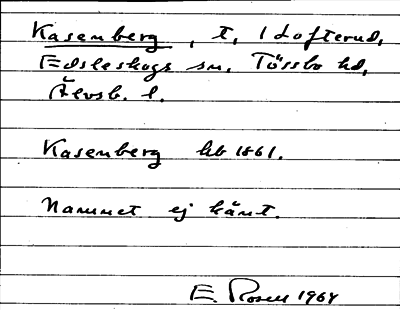 Kasenberg, t, 1 Lofterud,
Edsleskogs sn. Tössbo hd,
Älvsb. l.
Kasenberg hb 1861.
Namnet ej känt.
E. Rosell 1964